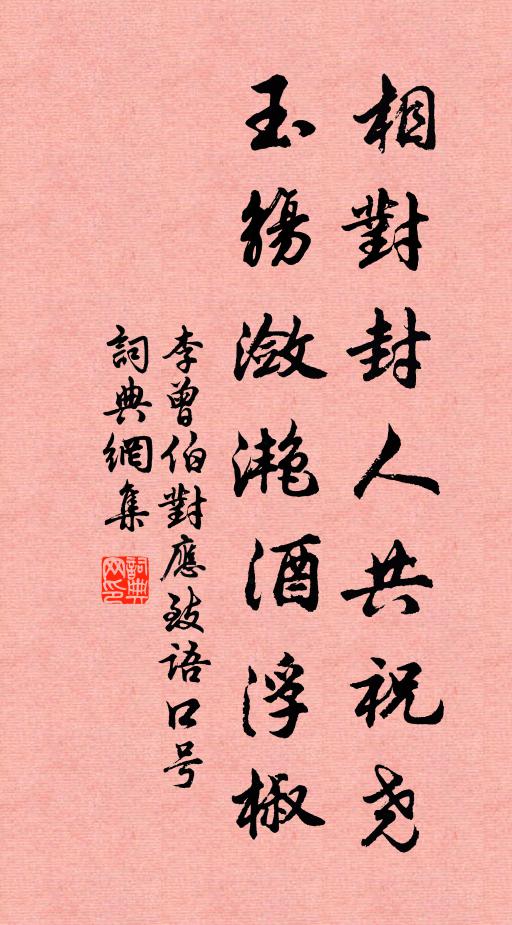 相對封人共祝尧
玉觴潋滟酒浮椒
李曾伯對應致語口号
詞典網集
詞典网印